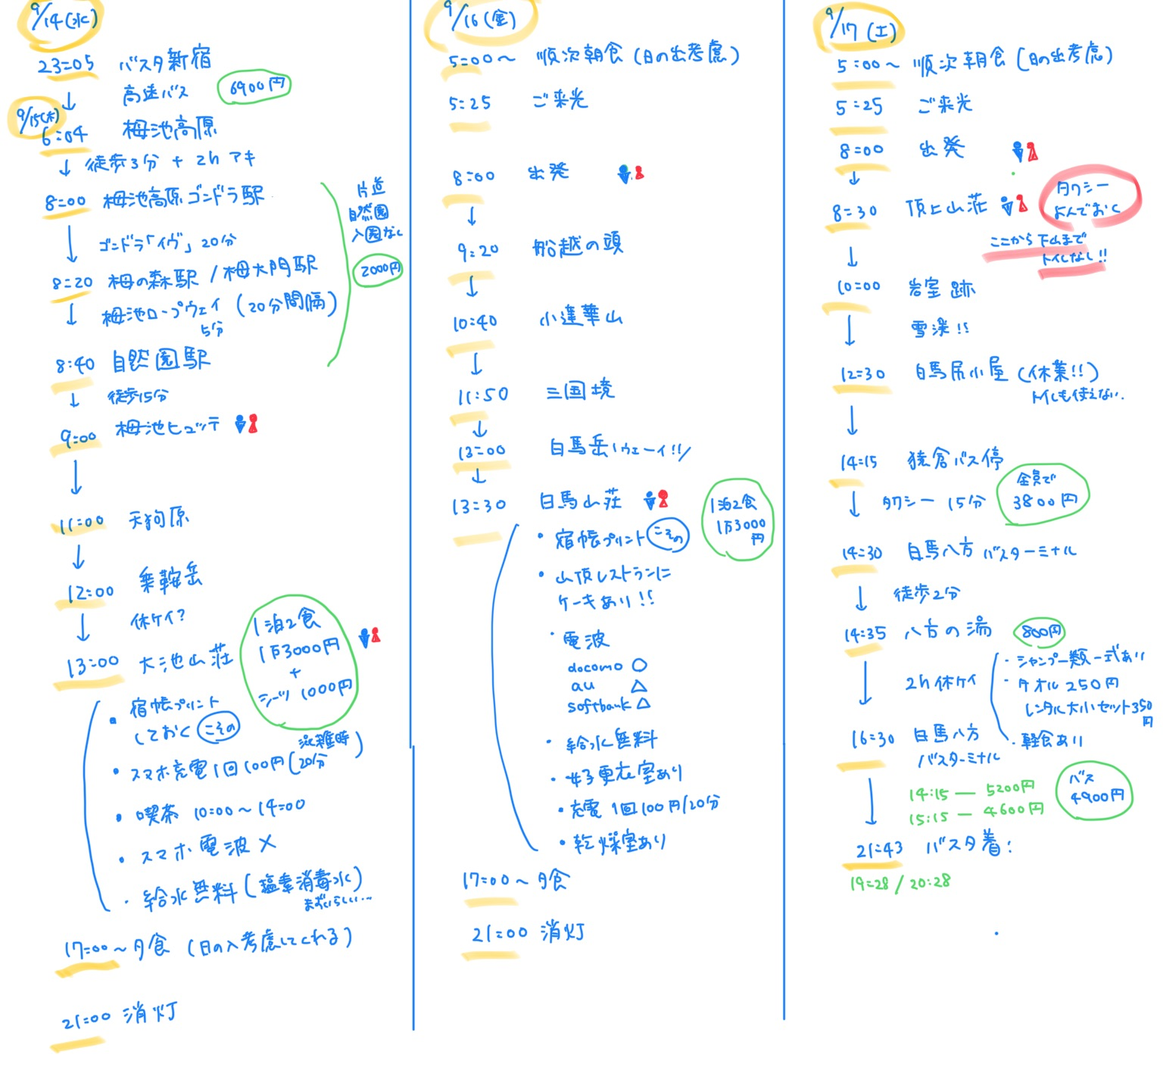 9/14(水)
23:05 バスタ新宿
高速バス 6900円
9/15(木)
6:04 栂池高原
徒歩3分 + 2h アキ
8:00 栂池高原ゴンドラ駅
ゴンドラ「イヴ」20分
8:20 栂の森駅/栂大門駅
栂池ロープウェイ (20分間隔)
5分
8:40 自然園駅
片道
自然園
入園なし
2000円
徒歩15分
9:00 栂池ヒュッテ
11:00 天狗原
12:00 乗鞍岳
休ケイ?
13:00 大池山荘
1泊2食
1万3000円
+
シーツ 1000円
・宿帳プリント
しておく こその
・スマホ充電1回100円(混雑時20分)
・喫茶 10:00〜14:00
・スマホ電波 ×
・給水無料(塩素消毒水)
まずいらしい…
17:00〜夕食 (日の入考慮してくれる)
21:00 消灯
9/16(金)
5:00〜 順次朝食(日の出考慮)
5:25 ご来光
8:00 出発
9:20 船越の頭
10:40 小蓮華山
11:50 三国境
13:00 白馬岳 ウェーイ!!
13:30 白馬山荘
1泊2食
1万3000
円
・宿帳プリント こその
・山頂レストランに
ケーキあり!!
・電波
docomo ○
au △
softbank △
・給水無料
・女子更衣室あり
・充電 1回100円/20分
・乾燥室あり
17:00〜夕食
21:00 消灯
9/17(土)
5:00〜 順次朝食(日の出考慮)
5:25 ご来光
8:00 出発
8:30 頂上山荘
タクシー
よんでおく
ここから下山まで
トイレなし!!
10:00 岩室跡
雪渓!!
12:30 白馬尻小屋(休業!!)
トイレも使えない.
14:15 猿倉バス停
タクシー 15分
全員で
3800円
14:30 白馬八方バスターミナル
徒歩2分
14:35 八方の湯 800円
2h休ケイ
・シャンプー類一式あり
・タオル250円
レンタル大小セット350円
・軽食あり
16:30 白馬八方
バスターミナル
14:15 ー 5200円
15:15 ー 4600円
バス
4900円
21:43 バスタ着!
19:28 / 20:28